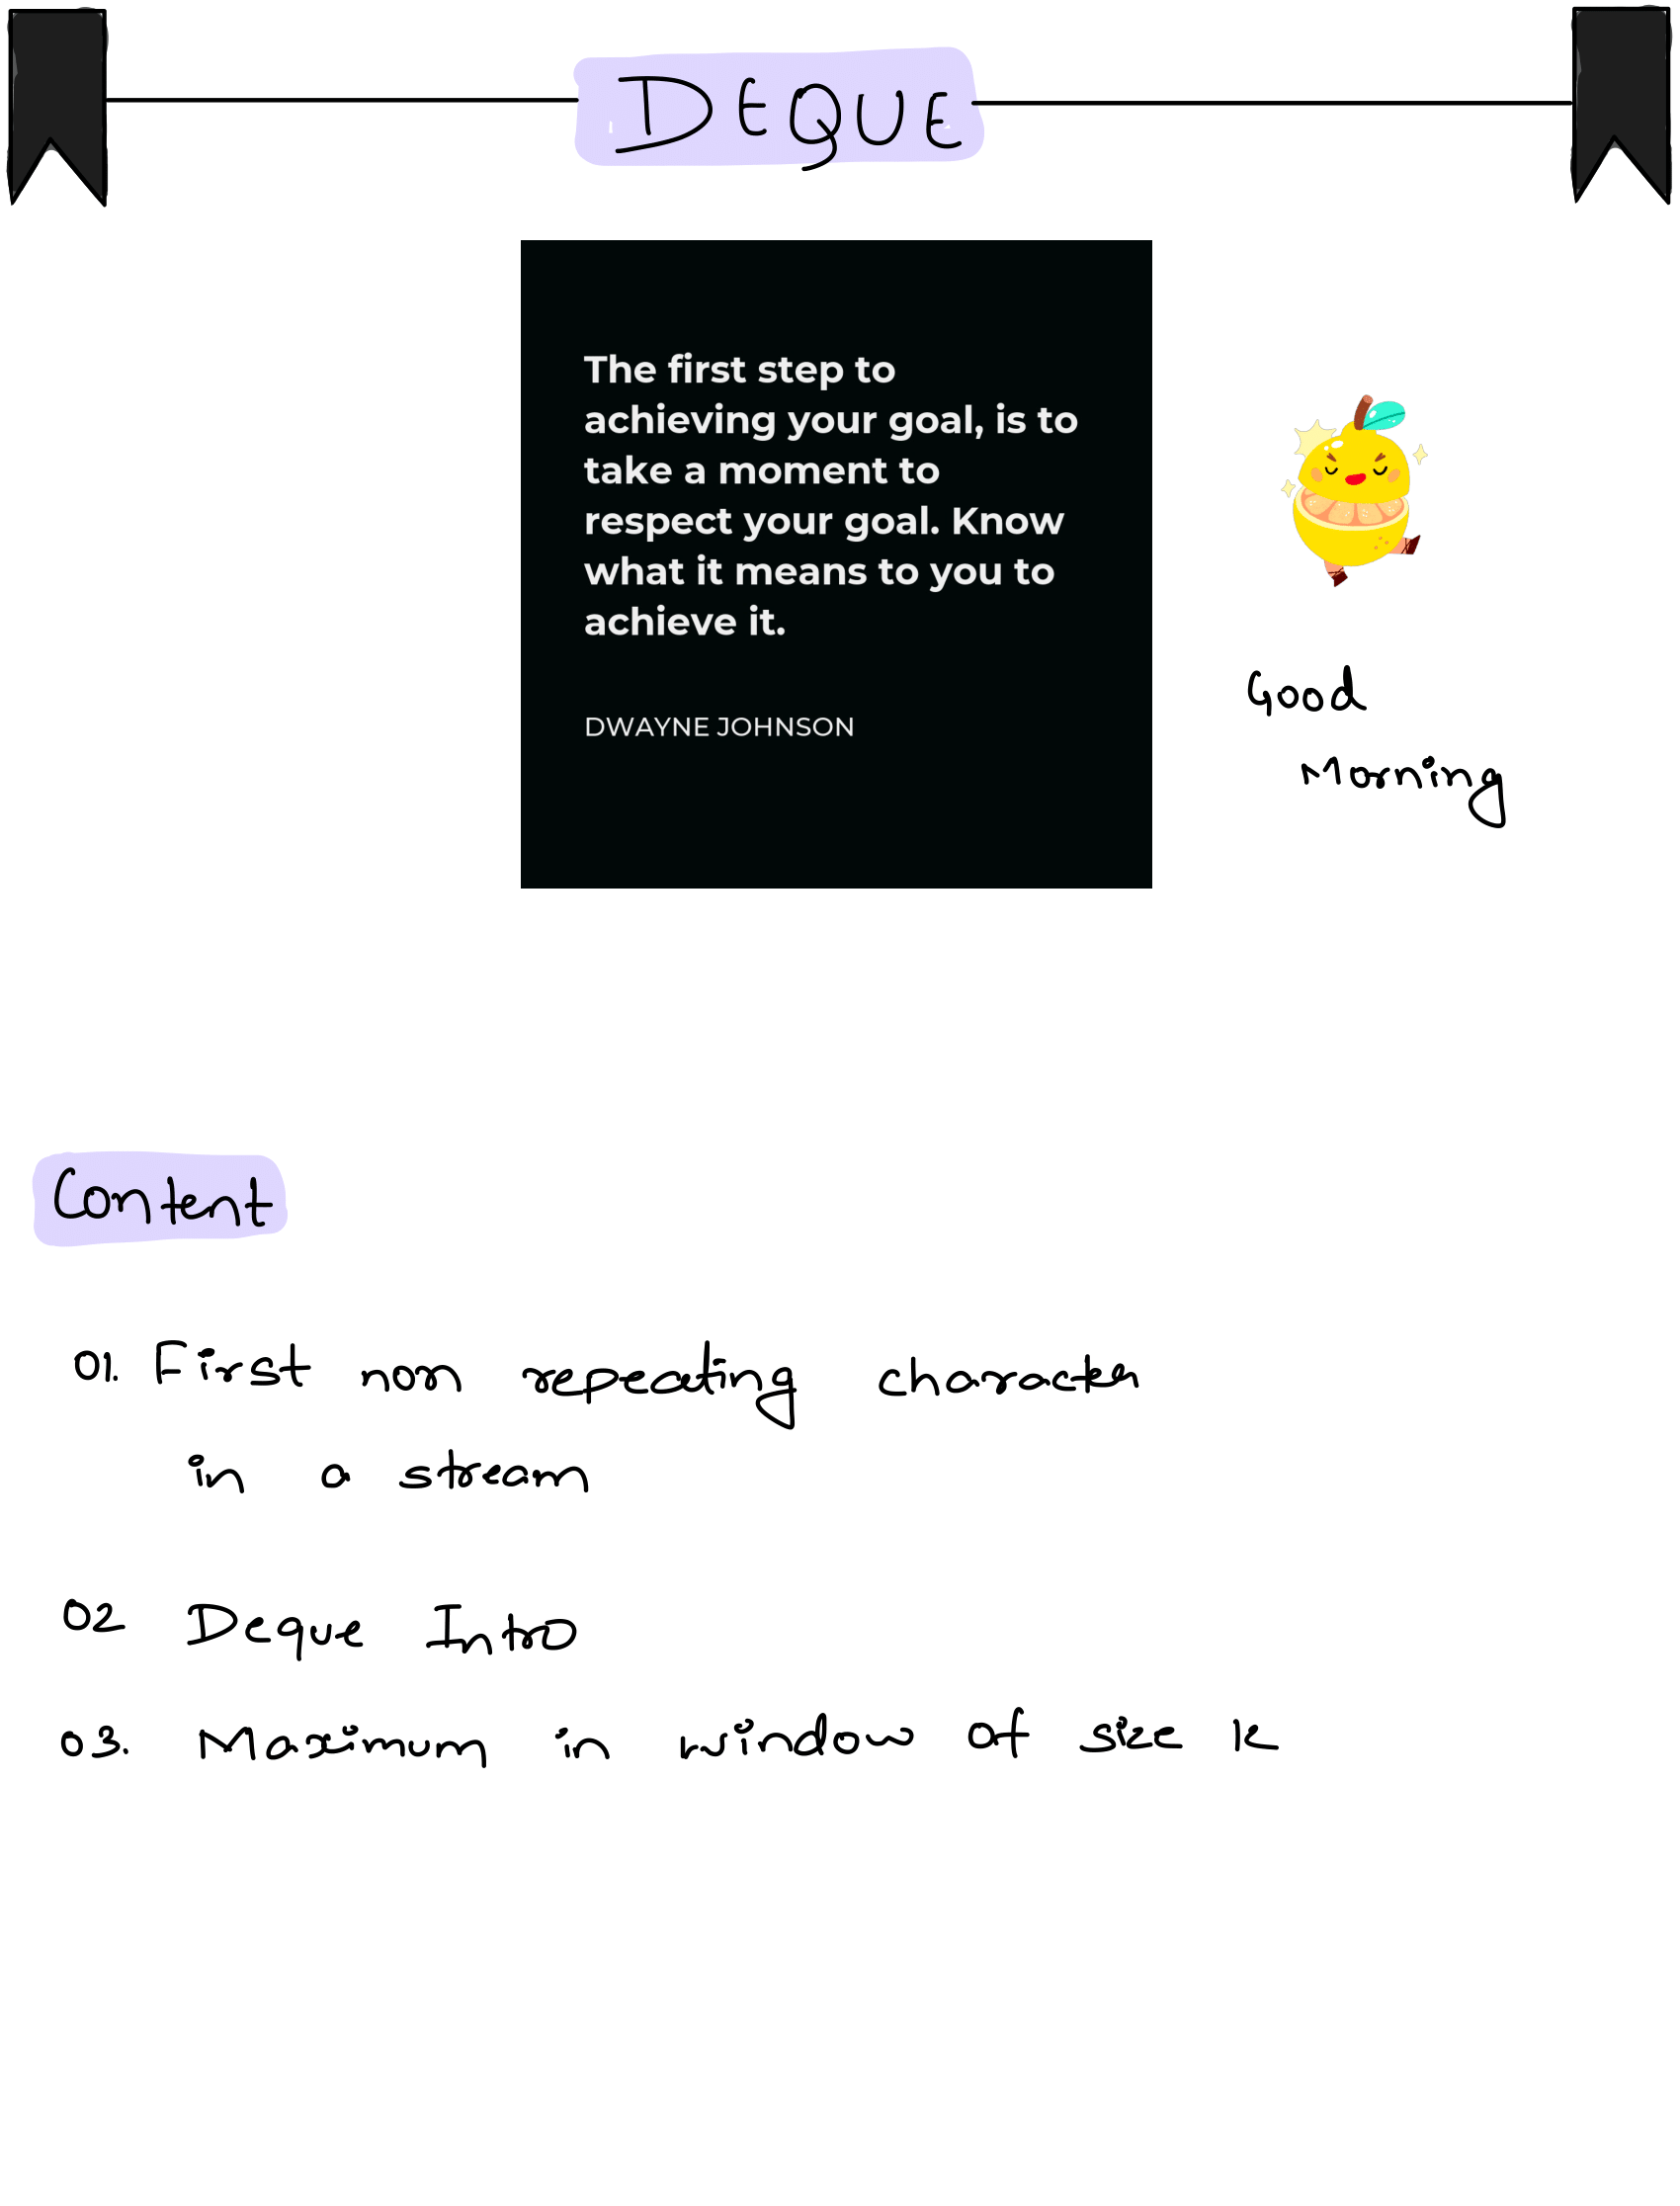 DEQUE
The first step to
achieving your goal, is to
take a moment to
respect your goal. Know
what it means to you to
achieve it.
DWAYNE JOHNSON
Good
Morning
Content
01. First non repeating character
in a stream
02 Deque Intro
03. Maximum in window of size k